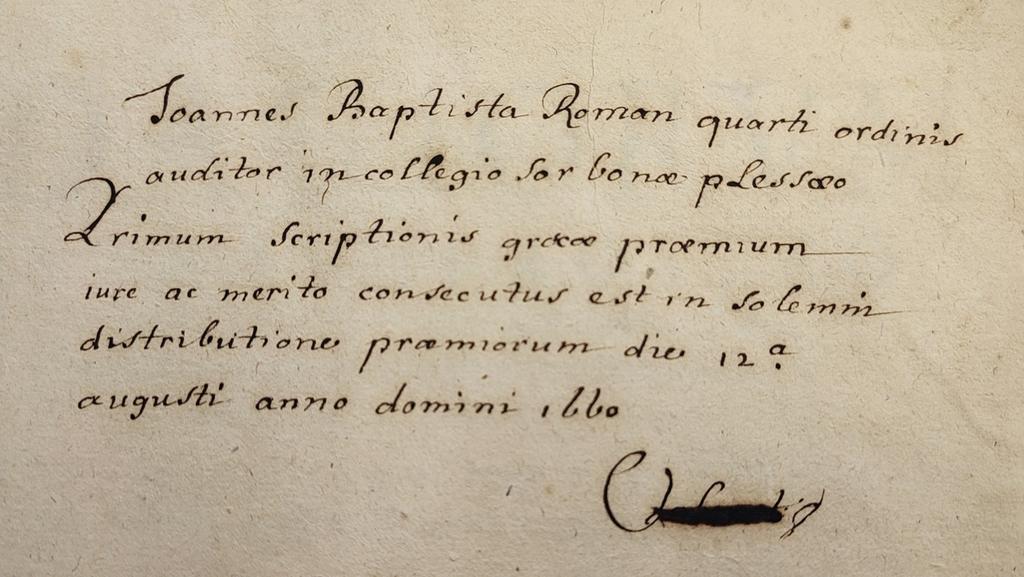 Joannes Baptista Roman quarti ordinis
auditor in collegio sor bonæ plessæo
Primum scriptionis græcæ præmium
iure ac merito consecutus est in solemni
distributione præmiorum die 12ª
augusti anno domini 1660